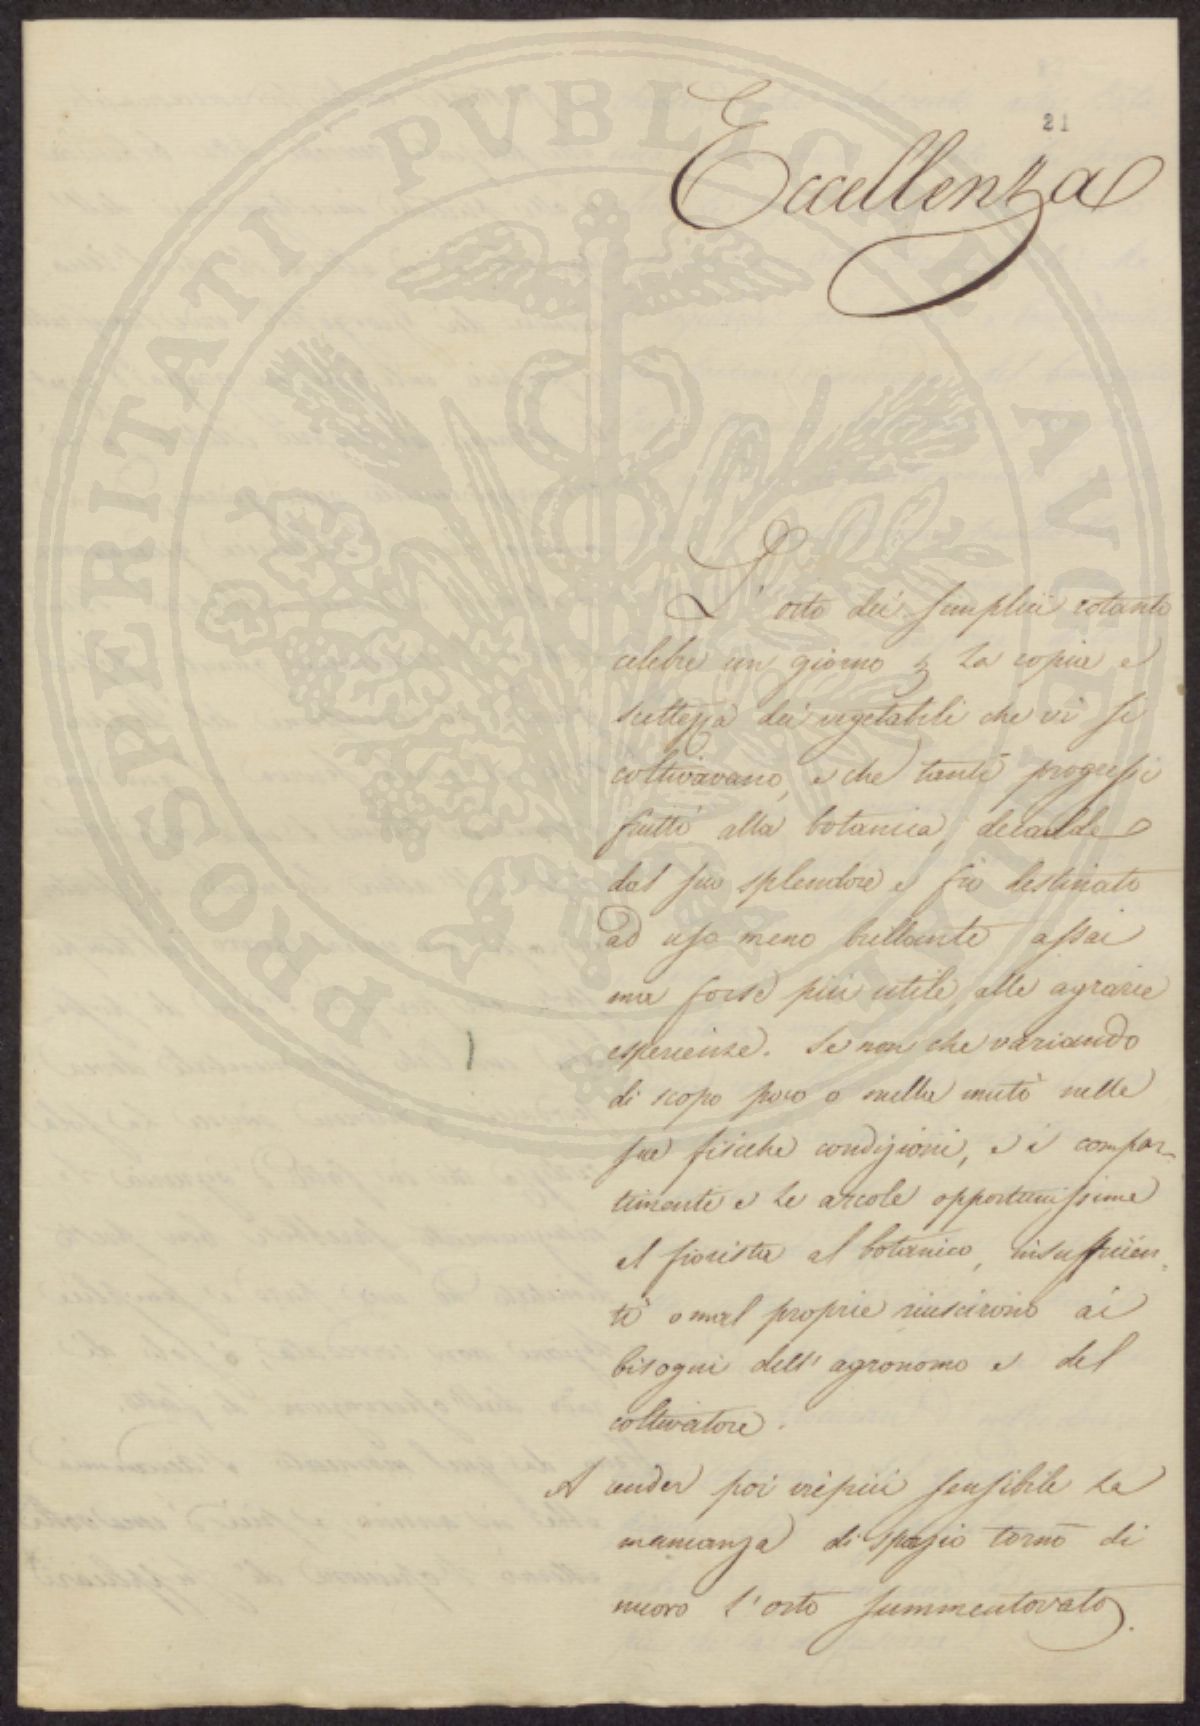 21
Eccellenza
L'orto dei semplici cotanto
celebre un giorno p la copia e
scettezza dei vegetabili che vi si
coltivavano, e che tanti progressi
fruttò alla botanica, decadde
dal suo splendore e fù destinato
ad uso meno brillante assai
ma forse più utile, alle agrarie
esperienze. Se non che variando
di scopo poco o nulla mutò nelle
sue fisiche condizioni, e i compar-
timenti e le areole opportunissime
al fiorista al botanico, insufficien-
ti o mal proprie riuscirono ai
bisogni dell'agronomo e del
coltivatore.
A render poi viepiù sensibile la
mancanza di spazio tornò di
nuovo l'orto summentovato
PROSPERITATI PVBLICAE AVGENDAE